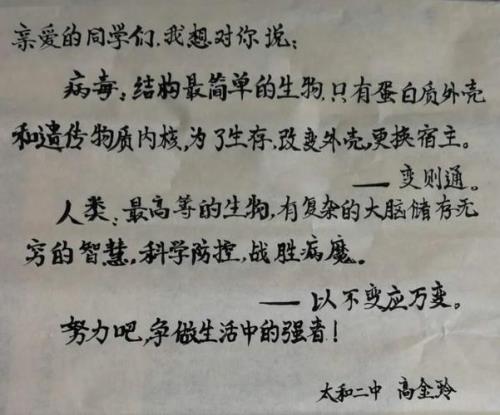 亲爱的同学们.我想对你说：
病毒：结构最简单的生物.只有蛋白质外壳
和遗传物质内核,为了生存.改变外壳,更换宿主。
——变则通。
人类：最高等的生物,有复杂的大脑储存无
穷的智慧,科学防控,战胜病魔。
——以不变应万变。
努力吧,争做生活中的强者！
太和二中 高金玲